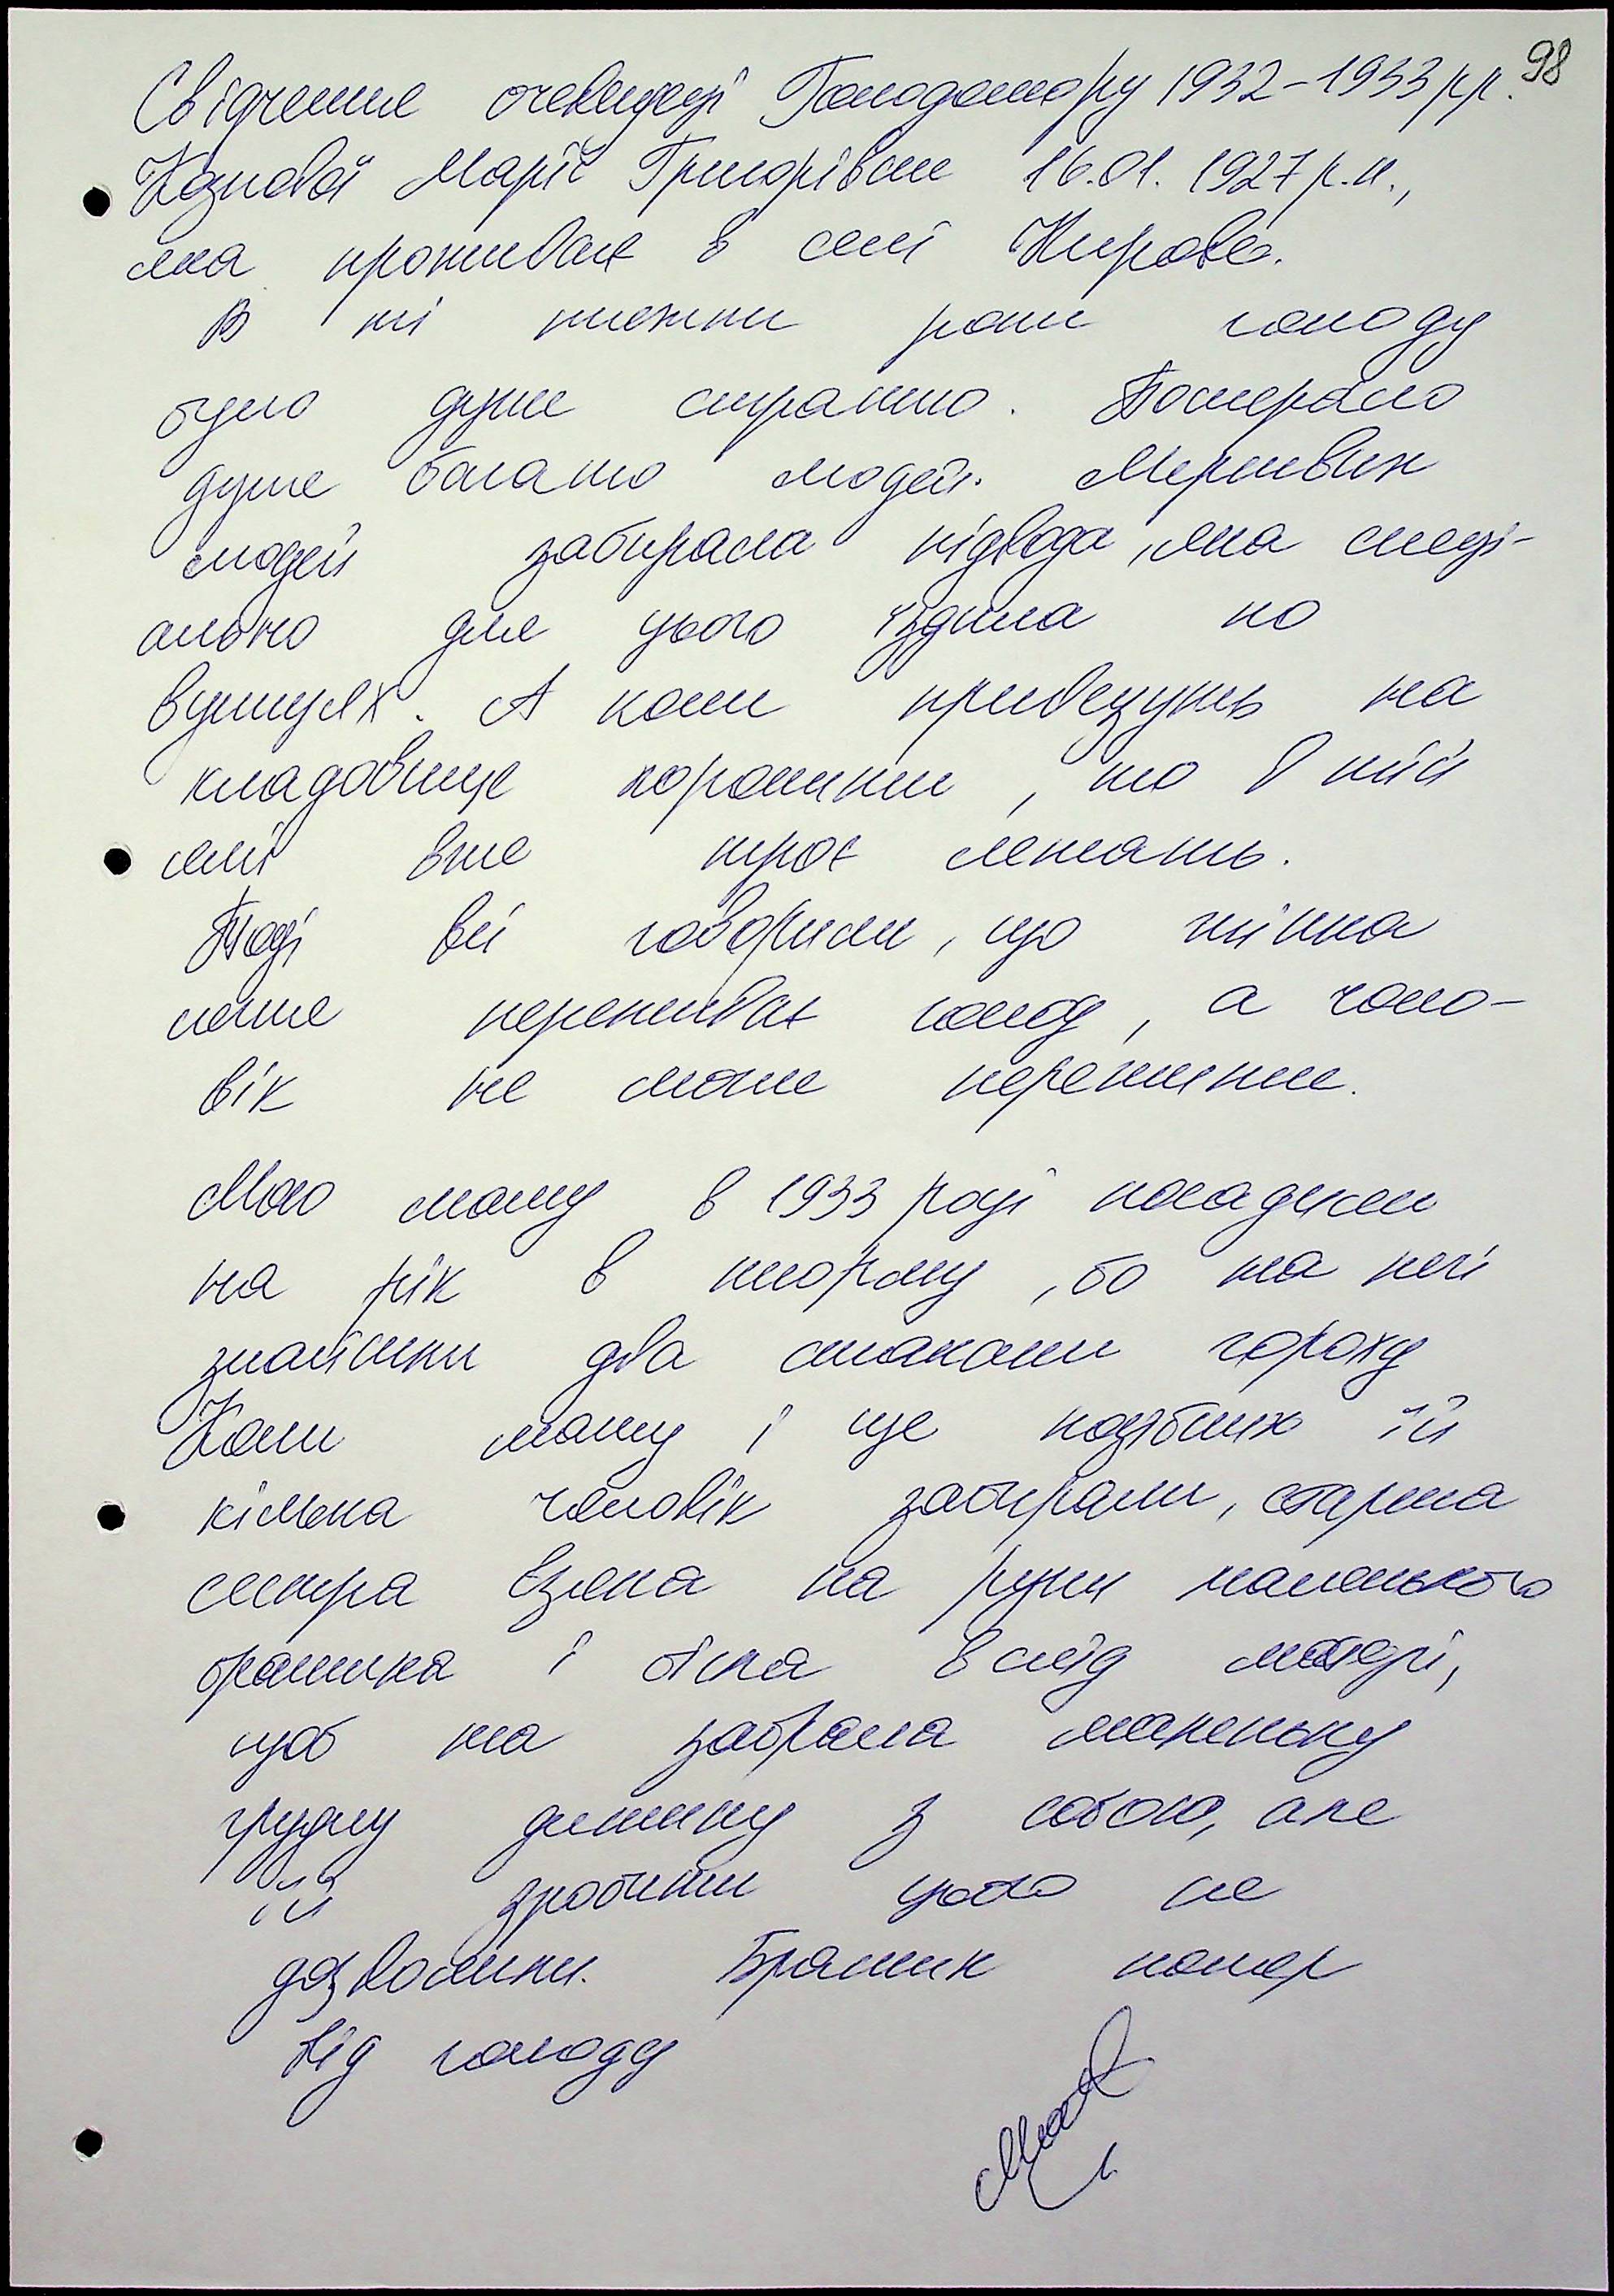 98
Свідчення очевидці Голодомору 1932-1933 рр.
Козловой Марії Григорівни 16.01.1927 р.н.,
яка проживає в селі Кирове.
В ті тяжкі роки голоду
було дуже страшно. Померало
дуже багато людей. Мертвих
людей забирала підвода, яка спеці-
ально для цього їздила по
вулицях. А коли привезуть на
кладовище хоронити, то в тій
ямі вже троє лежать.
Тоді всі говорили, що жінка
легше переживає голод, а чоло-
вік не може пережити.
Мою маму в 1933 році посадили
на рік в тюрму, бо на печі
знайшли два стакани гороху
Коли маму і ще подібних їй
кілька чоловік забирали, старша
сестра взяла на руки маленького
братика і бігла вслід матері,
щоб та забрала маленьку
грудну дитину з собою, але
їй зробити цього не
дозволили. Братик помер
від голоду